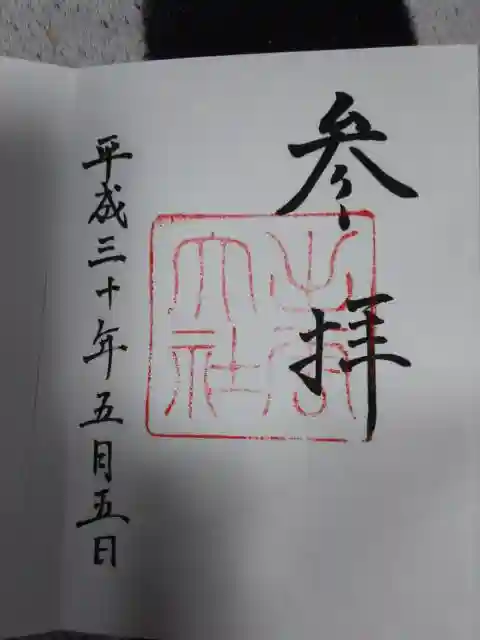 参拝
大社
平成三十年五月五日